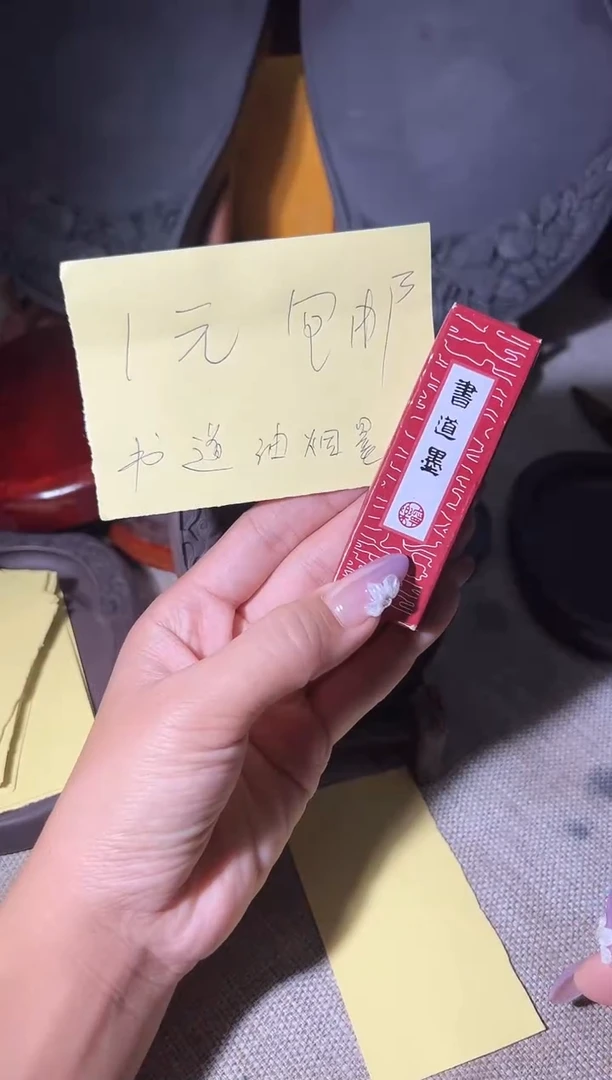 1元 包邮
书道油烟墨
書道墨